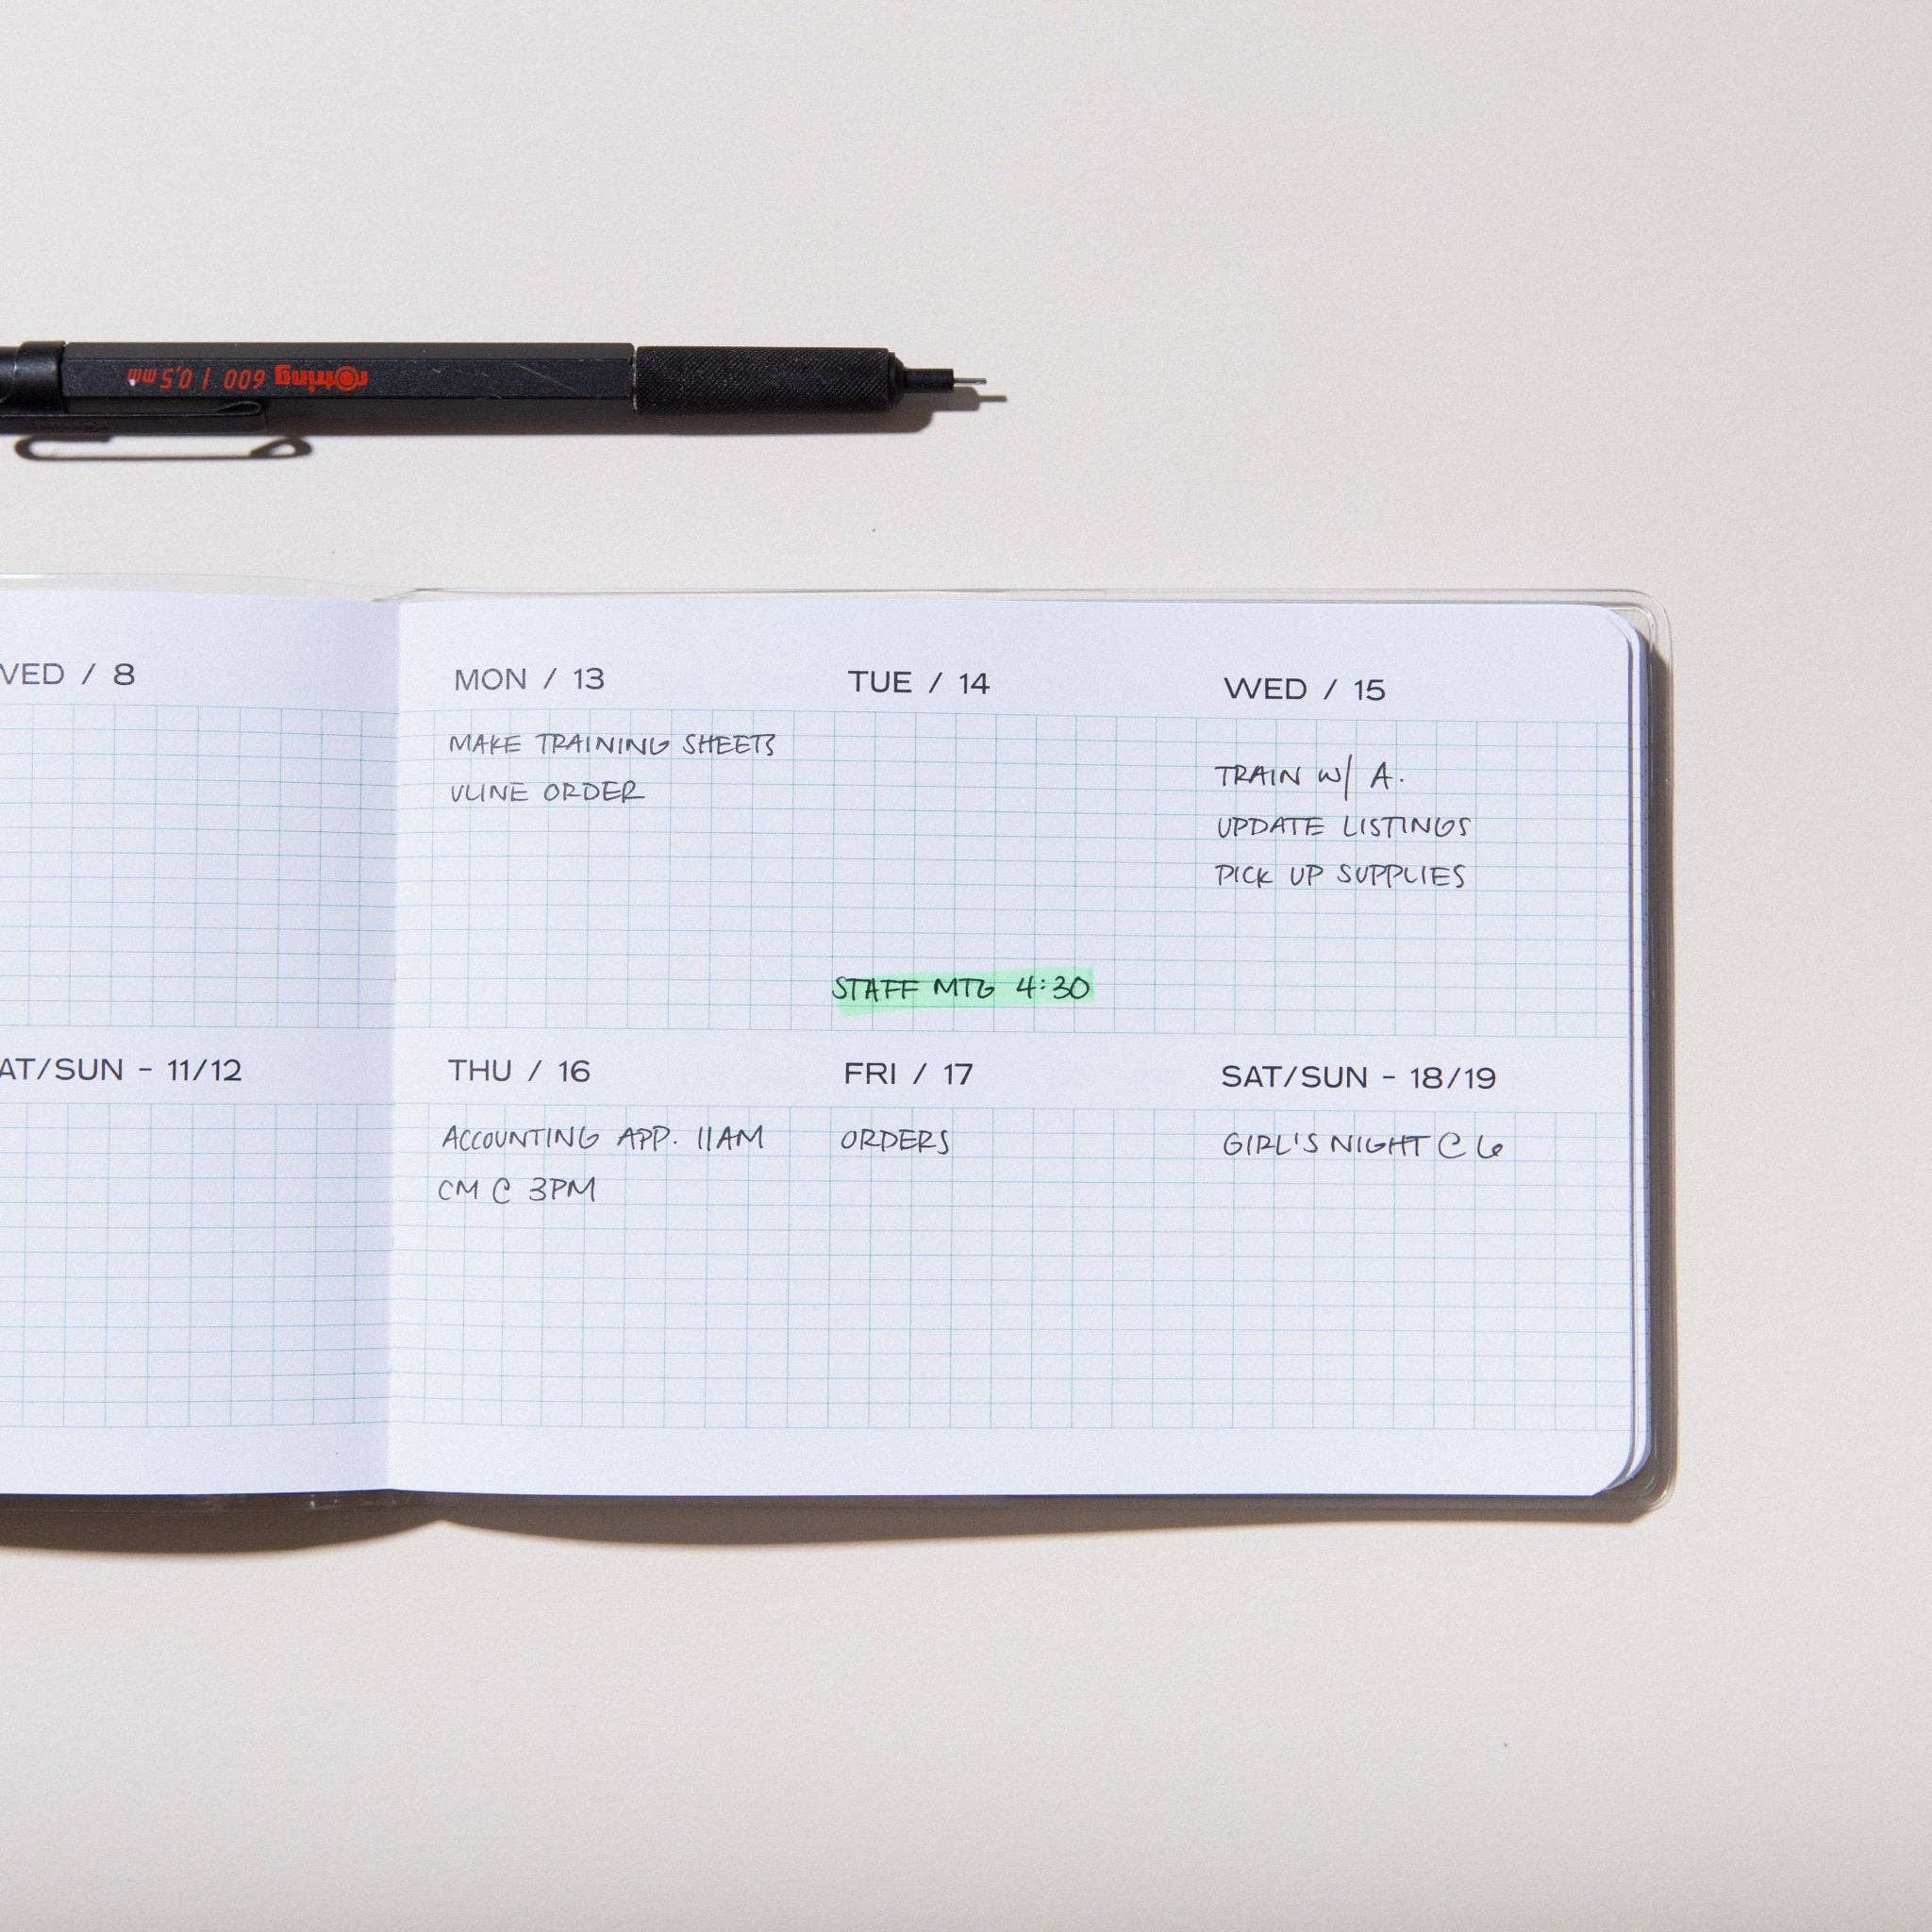 rotring 600 | 0,5 mm
WED / 8
MON / 13
MAKE TRAINING SHEETS
ULINE ORDER
TUE / 14
STAFF MTG 4:30
WED / 15
TRAIN W/ A.
UPDATE LISTINGS
PICK UP SUPPLIES
SAT/SUN - 11/12
THU / 16
ACCOUNTING APP. 11AM
CM @ 3PM
FRI / 17
ORDERS
SAT/SUN - 18/19
GIRL'S NIGHT @ 6